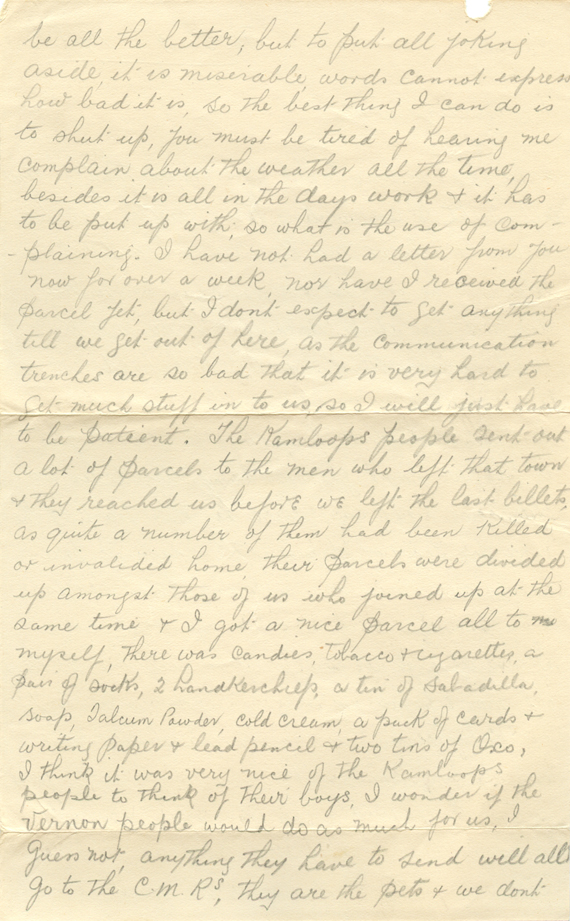 be all the better, but to put all joking
aside, it is miserable words cannot express
how bad it is, so the best thing I can do is
to shut up, you must be tired of hearing me
complain about the weather all the time,
besides it is all in the days work & it has
to be put up with, so what is the use of com-
-plaining. I have not had a letter from you
now for over a week, nor have I received the
parcel yet, but I dont expect to get anything
till we get out of here, as the communication
trenches are so bad that it is very hard to
get much stuff in to us, so I will just have
to be patient. The Kamloops people sent out
a lot of parcels to the men who left that town
& they reached us before we left the last billets,
as quite a number of them had been killed
or invalided home, their parcels were divided
up amongst those of us who joined up at the
same time & I got a nice parcel all to
myself, there was candies, tobacco & cigarettes, a
pair of socks, 2 handkerchiefs, a tin of Sabadilla,
soap, Talcum Powder, cold cream, a pack of cards &
writing paper & lead pencil & two tins of Oxo,
I think it was very nice of the Kamloops
people to think of their boys, I wonder if the
Vernon people would do as much for us, I
guess not, anything they have to send will all
go to the C.M.R's, they are the pets & we dont